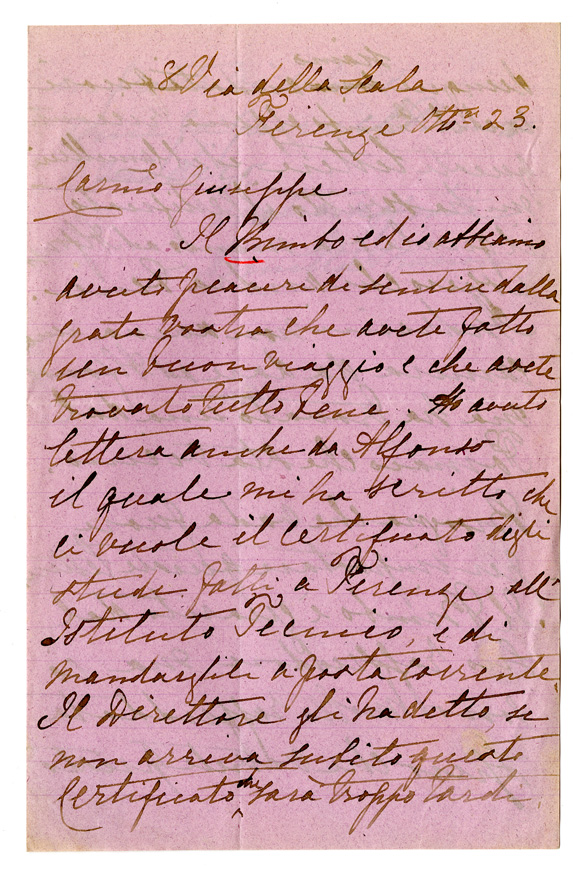 8 Via della Scala
Firenze Otto. 23.
Carmo Giuseppe
Il Bimbo ed io abbiamo
avuto piacere di sentire dalla
grata vostra che avete fatto
un buon viaggio e che avete
trovato tutto bene. Ho avuto
lettera anche da Alfonso
il quale mi ha scritto che
ci vuole il certificato degli
studi fatti a Firenze all'
Istituto Tecnico, e di
mandarglili a posta corrente.
Il Direttore gli ha detto, se
non arriva subito questo
Certificato sara troppo tardi